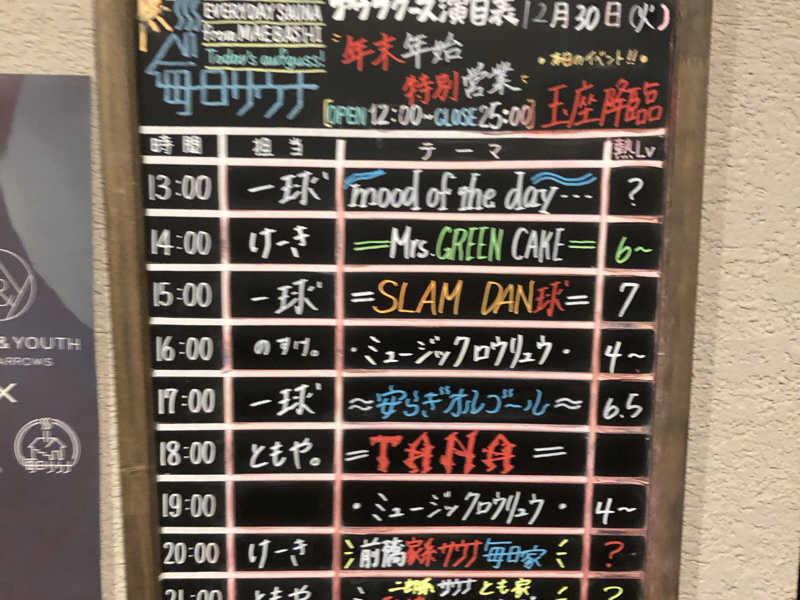 EVERYDAY SAUNA
from MAEBASHI
Today's aufguss!
毎日サウナ
アウフグース演目表 12月30日(火)
年末年始
特別営業
・本日のイベント!!・
OPEN 12:00~CLOSE 25:00
玉座降臨
時間 担当 テーマ 熱Lv
13:00 一球 mood of the day… ?
14:00 けーき =Mrs. GREEN CAKE= 6~
15:00 一球 =SLAM DAN球= 7
16:00 のすけ。 ・ミュージックロウリュウ・ 4~
17:00 一球 ≈安らぎオルゴール≈ 6.5
18:00 ともや。 =TANA=
19:00 ・ミュージックロウリュウ・ 4~
20:00 けーき 前橋家系サウナ毎日家 ?
21:00 ともや サウナ とも家 ?
& YOUTH
ARROWS
X
毎日サウナ